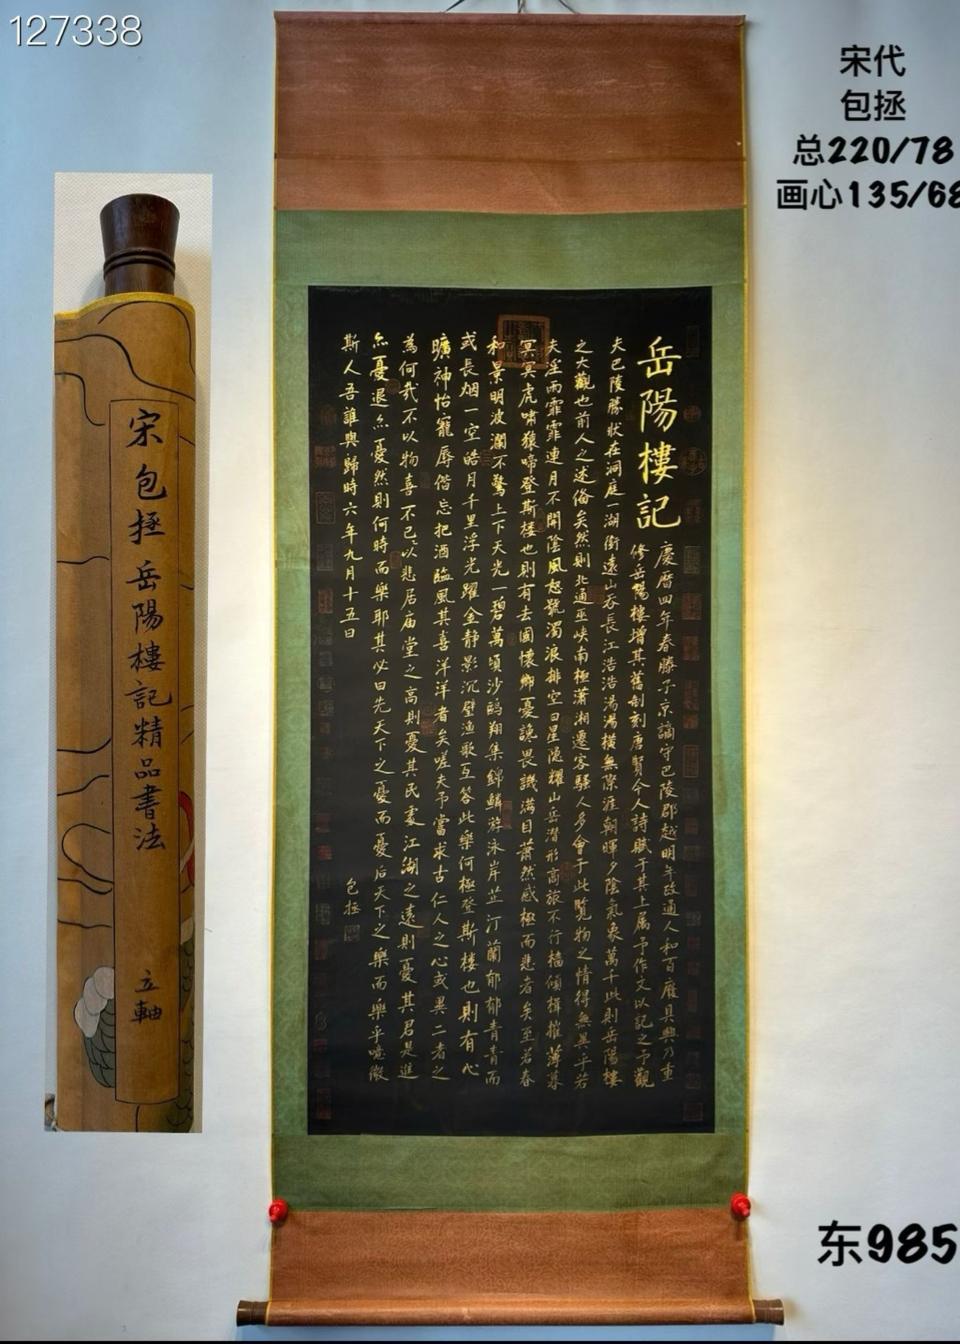 127338
宋代
包拯
总220/78
画心135/68
宋包拯岳陽樓記精品書法
立軸
岳陽樓記
慶曆四年春滕子京謫守巴陵郡越明年政通人和百廢具興乃重
修岳陽樓增其舊制刻唐賢今人詩賦于其上属予作文以記之予觀
夫巴陵勝狀在洞庭一湖銜遠山吞長江浩浩湯湯橫無際涯朝暉夕陰氣象萬千此則岳陽樓
之大觀也前人之述俻矣然則北通巫峽南極瀟湘遷客騷人多會于此覽物之情得無異乎若
夫坐雨霏霏連月不開陰風怒號濁浪排空日星隐耀山岳潜形商旅不行檣傾楫摧薄暮
冥冥虎嘯猿啼登斯樓也則有去國懷鄉憂讒畏譏满目蕭然感極而悲者矣至若春
和景明波瀾不驚上下天光一碧萬頃沙鷗翔集錦鱗游泳岸芷汀蘭郁郁青青而
或長烟一空皓月千里浮光躍金静影沉璧渔歌互答此樂何極登斯樓也則有心
曠神怡寵辱偕忘把酒臨風其喜洋洋者矣嗟夫予嘗求古仁人之心或異二者之
為何哉不以物喜不已以悲居庙堂之高則憂其民處江湖之遠則憂其君是進
亦憂退亦憂然則何時而樂耶其必曰先天下之憂而憂后天下之樂而樂乎噫微
斯人吾誰與歸時六年九月十五日
包拯
东985